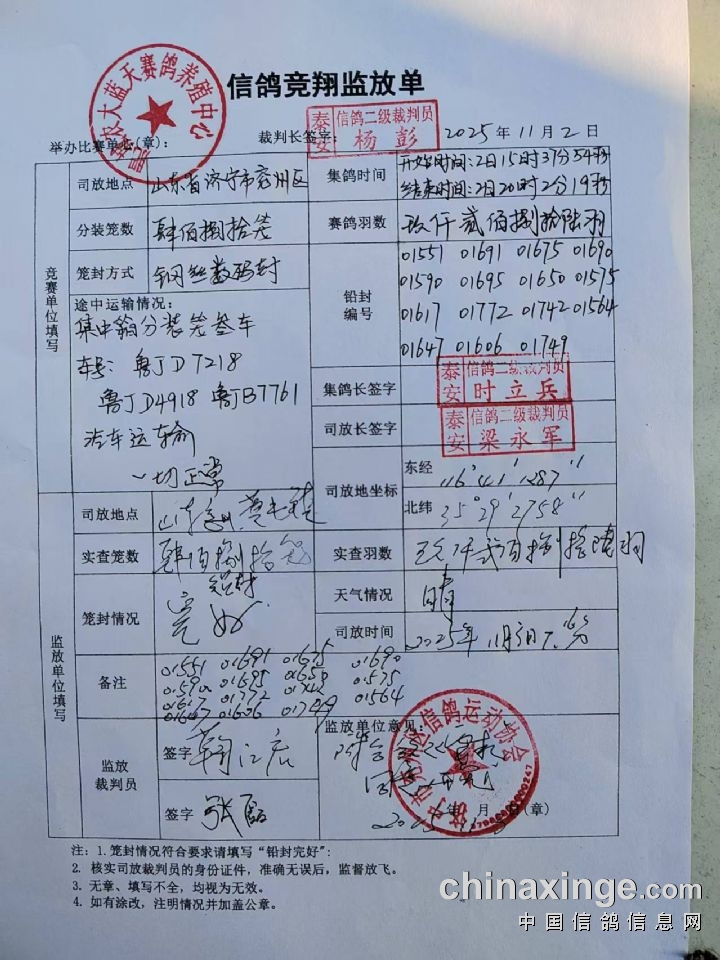 信鸽竞翔监放单
大蓝天赛鸽养殖中心
举办比赛单位(章)：
裁判长签字：
泰安 信鸽二级裁判员 杨彭
2025年11月2日
竞赛单位填写
司放地点 山东省济宁市兖州区
集鸽时间 开始时间:2日15时37分54秒
结束时间:2日20时2分19秒
分装笼数 肆佰捌拾笼
赛鸽羽数 玖仟贰佰捌拾陆羽
笼封方式 钢丝数码封
铅封编号
01551 01691 01675 01690
01590 01695 01650 01575
01617 01772 01742 01564
01647 01606 01749
途中运输情况：
集中鸽分装笼叁车
车号: 鲁J D7218
鲁J D4918 鲁J B7761
汽车运输
一切正常
集鸽长签字 泰安 信鸽二级裁判员 时立兵
司放长签字 泰安 信鸽二级裁判员 梁永军
司放地坐标
东经 116°41′1287″
北纬 35°29′2758″
监放单位填写
司放地点 山东
实查笼数 肆佰捌拾笼
实查羽数 玖仟贰佰捌拾陆羽
笼封情况 铅封完好
天气情况 晴
司放时间 2025年11月3日7
备注
01551 01691 01675 01690
01590 01695 01650 01575
01617 01772 01742 01564
01647 01606 01749
监放裁判员
签字
签字 张
监放单位意见：
信鸽运动协会
年 月 日(章)
注：1.笼封情况符合要求请填写“铅封完好”；
2. 核实司放裁判员的身份证件，准确无误后，监督放飞。
3. 无章、填写不全，均视为无效。
4. 如有涂改，注明情况并加盖公章。
chinaxinge.com
中国信鸽信息网